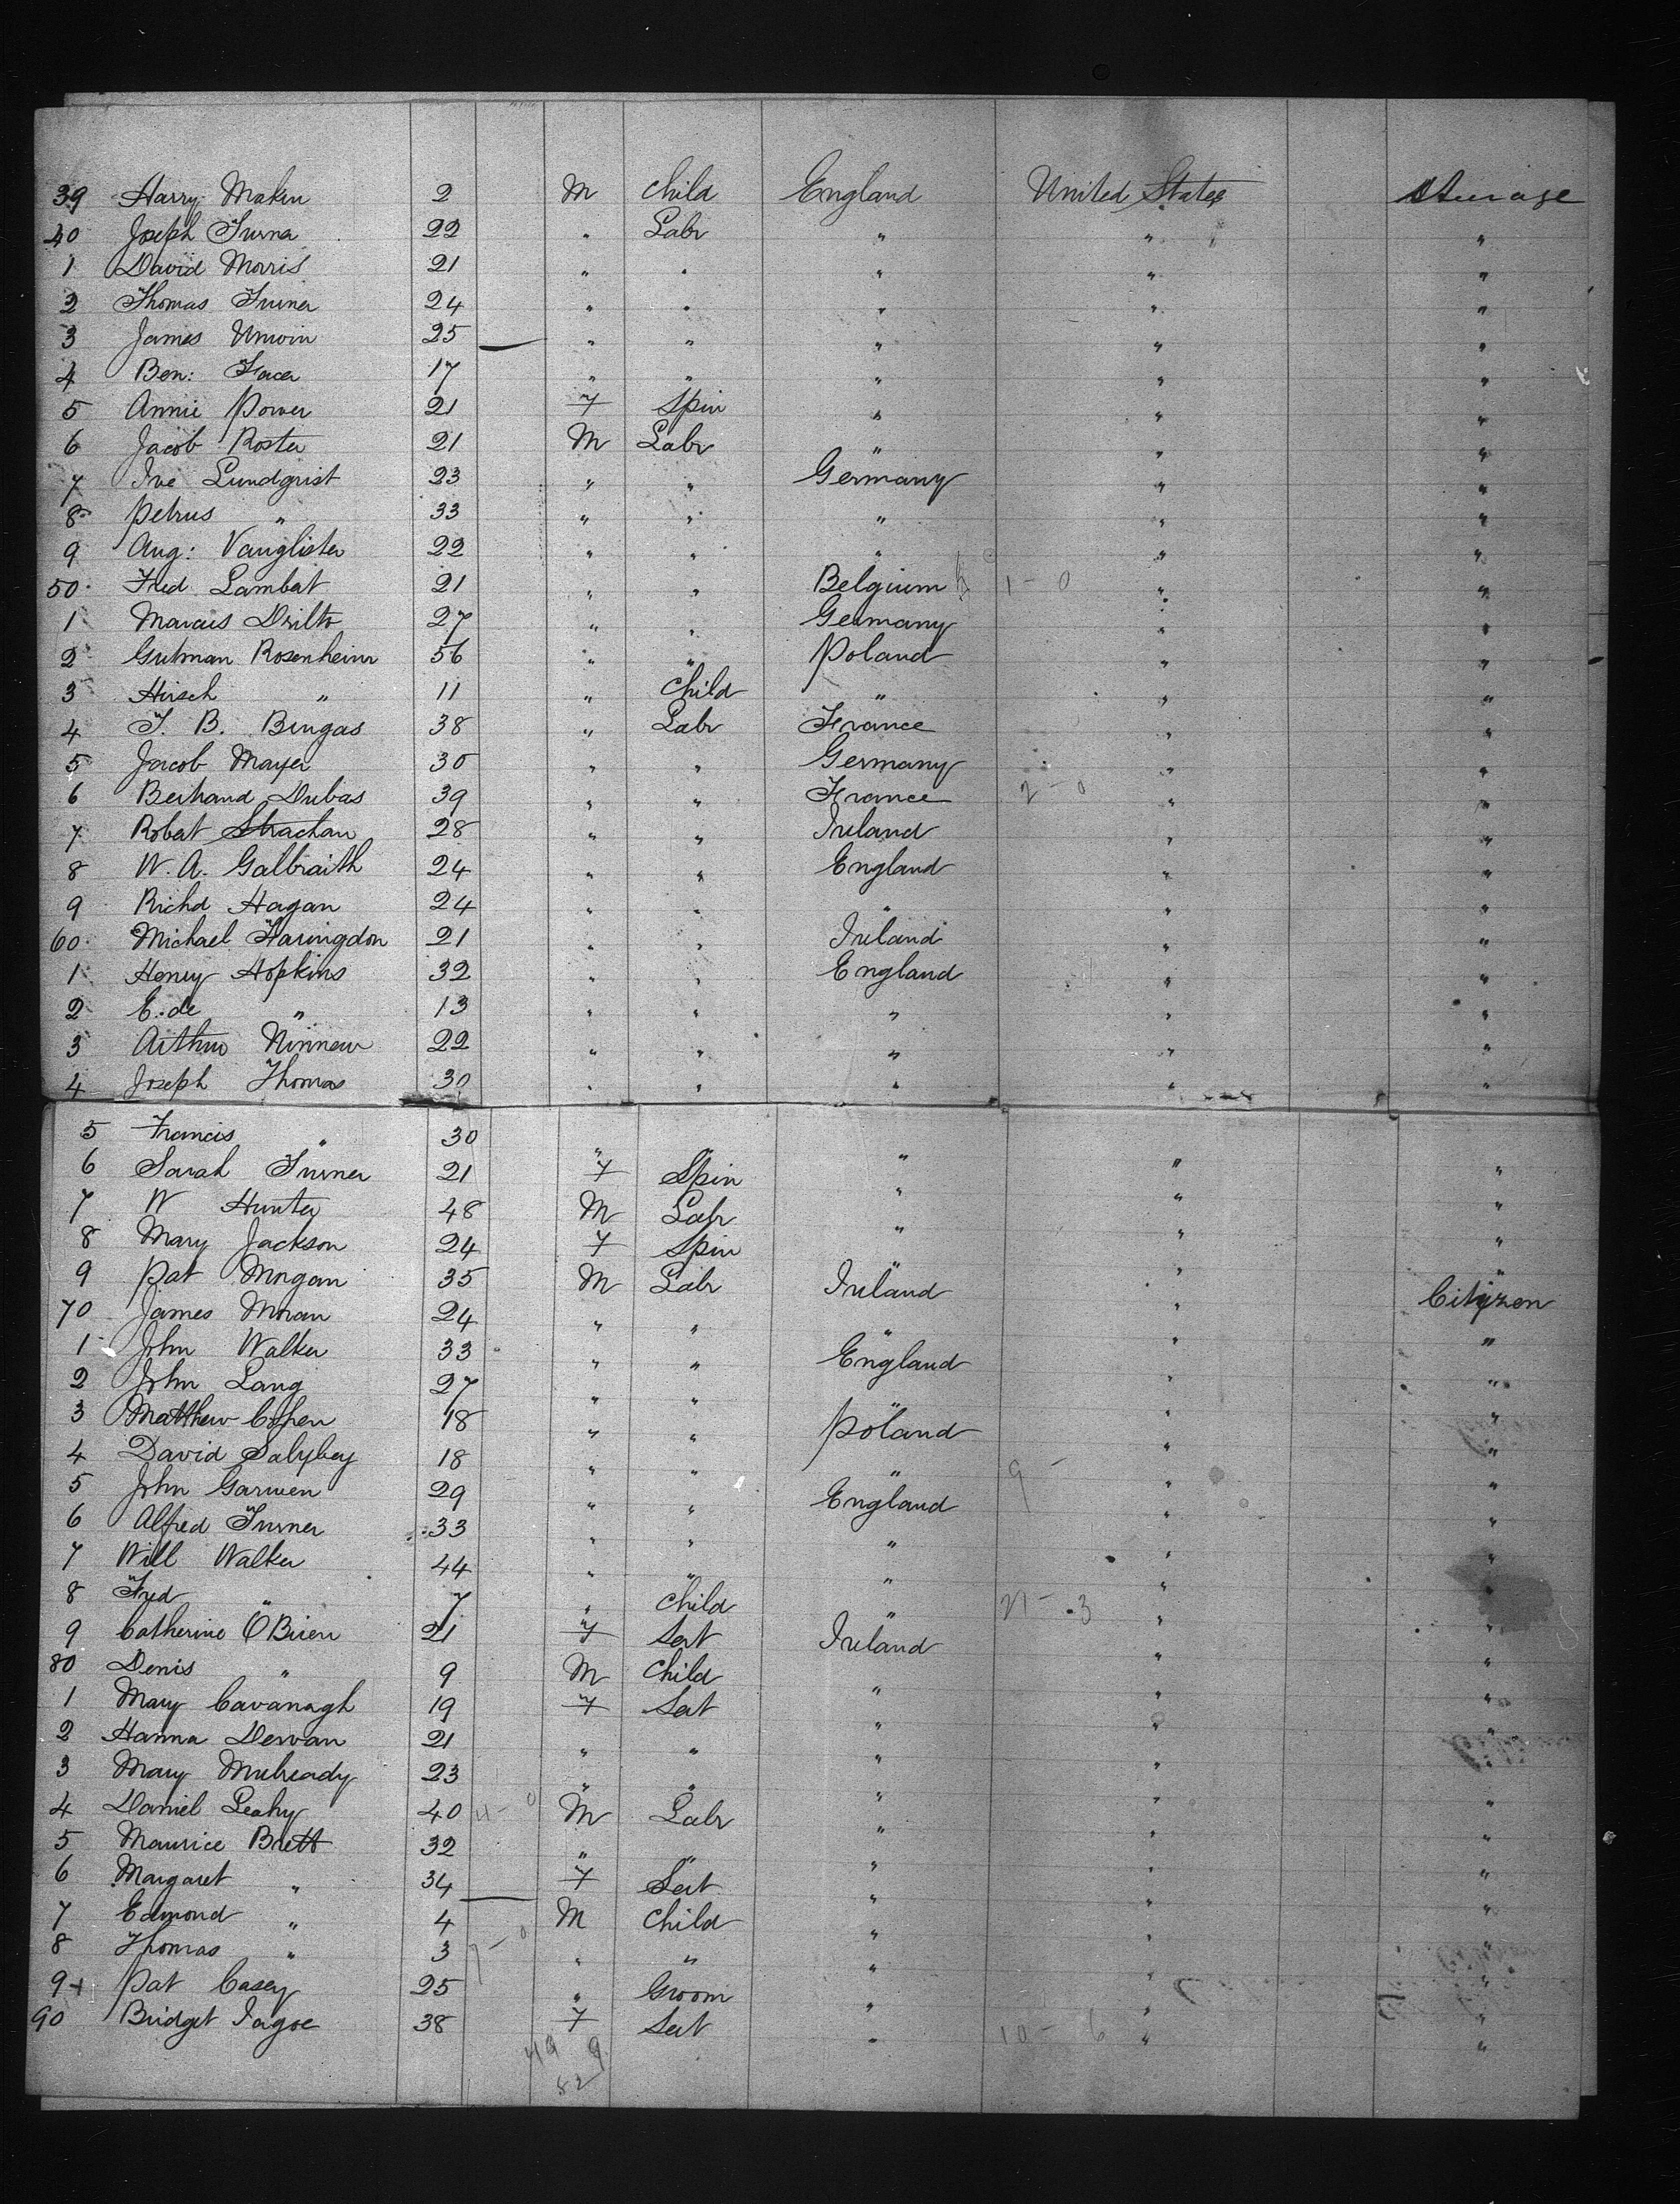 39 Harry Makin 2 M Child England United States Steerage
40 Joseph Turner 22 " Labr " " "
1 David Morris 21 " " " " "
2 Thomas Turner 24 " " " " "
3 James Unwin 25 " " " " "
4 Ben: Facer 17 " " " " "
5 Annie Power 21 F Spin " " "
6 Jacob Roster 21 M Labr " " "
7 Ive Lundqrist 23 " " Germany " "
8 Petrus " 33 " " " " "
9 Aug: Vanglister 22 " " " " "
50 Fred Lambert 21 " " Belgium 1 - 0 " "
1 Marcus 27 " " Germany " "
2 Gutman Rosenheim 56 " " Poland " "
3 Hirsch " 11 " Child " " "
4 J. B. Bingas 38 " Labr France " "
5 Jacob Mayer 30 " " Germany " "
6 Bertrand Dubas 39 " " France 2 - 0 " "
7 Robert Strachan 28 " " Ireland " "
8 W. A. Galbraith 24 " " England " "
9 Richd Hagan 24 " " " " "
60 Michael Faringdon 21 " " Ireland " "
1 Henry Hopkins 32 " " England " "
2 " 13 " " " " "
3 Arthur 22 " " " " "
4 Joseph Thomas 30 " " " " "
5 Francis " 30 " " " "
6 Sarah Turner 21 F Spin " " "
7 W Hunter 48 M Labr " " "
8 Mary Jackson 24 F Spin " " "
9 Pat Morgan 35 M Labr Ireland " Citizen
70 James Moran 24 " " " " "
1 John Walker 33 " " England " "
2 John Lang 27 " " " " "
3 Matthew Cohen 18 " " Poland " "
4 David 18 " " " 9 - " "
5 John Garwen 29 " " England " "
6 Alfred Turner 33 " " " " "
7 Will Walker 44 " " " " "
8 Fred " 7 " Child " 21 - 3 " "
9 Catherine O'Brien 21 F Sert Ireland " "
80 Denis " 9 M Child " " "
1 Mary Cavanagh 19 F Sert " " "
2 Hanna Dervan 21 " " " " "
3 Mary Mulready 23 " " " " "
4 Daniel Leahy 40 4 - 0 M Labr " " "
5 Maurice Brett 32 " " " " "
6 Margaret " 34 F Sert " " "
7 Edmond " 4 M Child " " "
8 Thomas " 3 7 - 0 " " " " "
9+ Pat Casey 25 " Groom " " "
90 Bridget Jagoe 38 F Sert " 10 - 6 " "
49 9
82